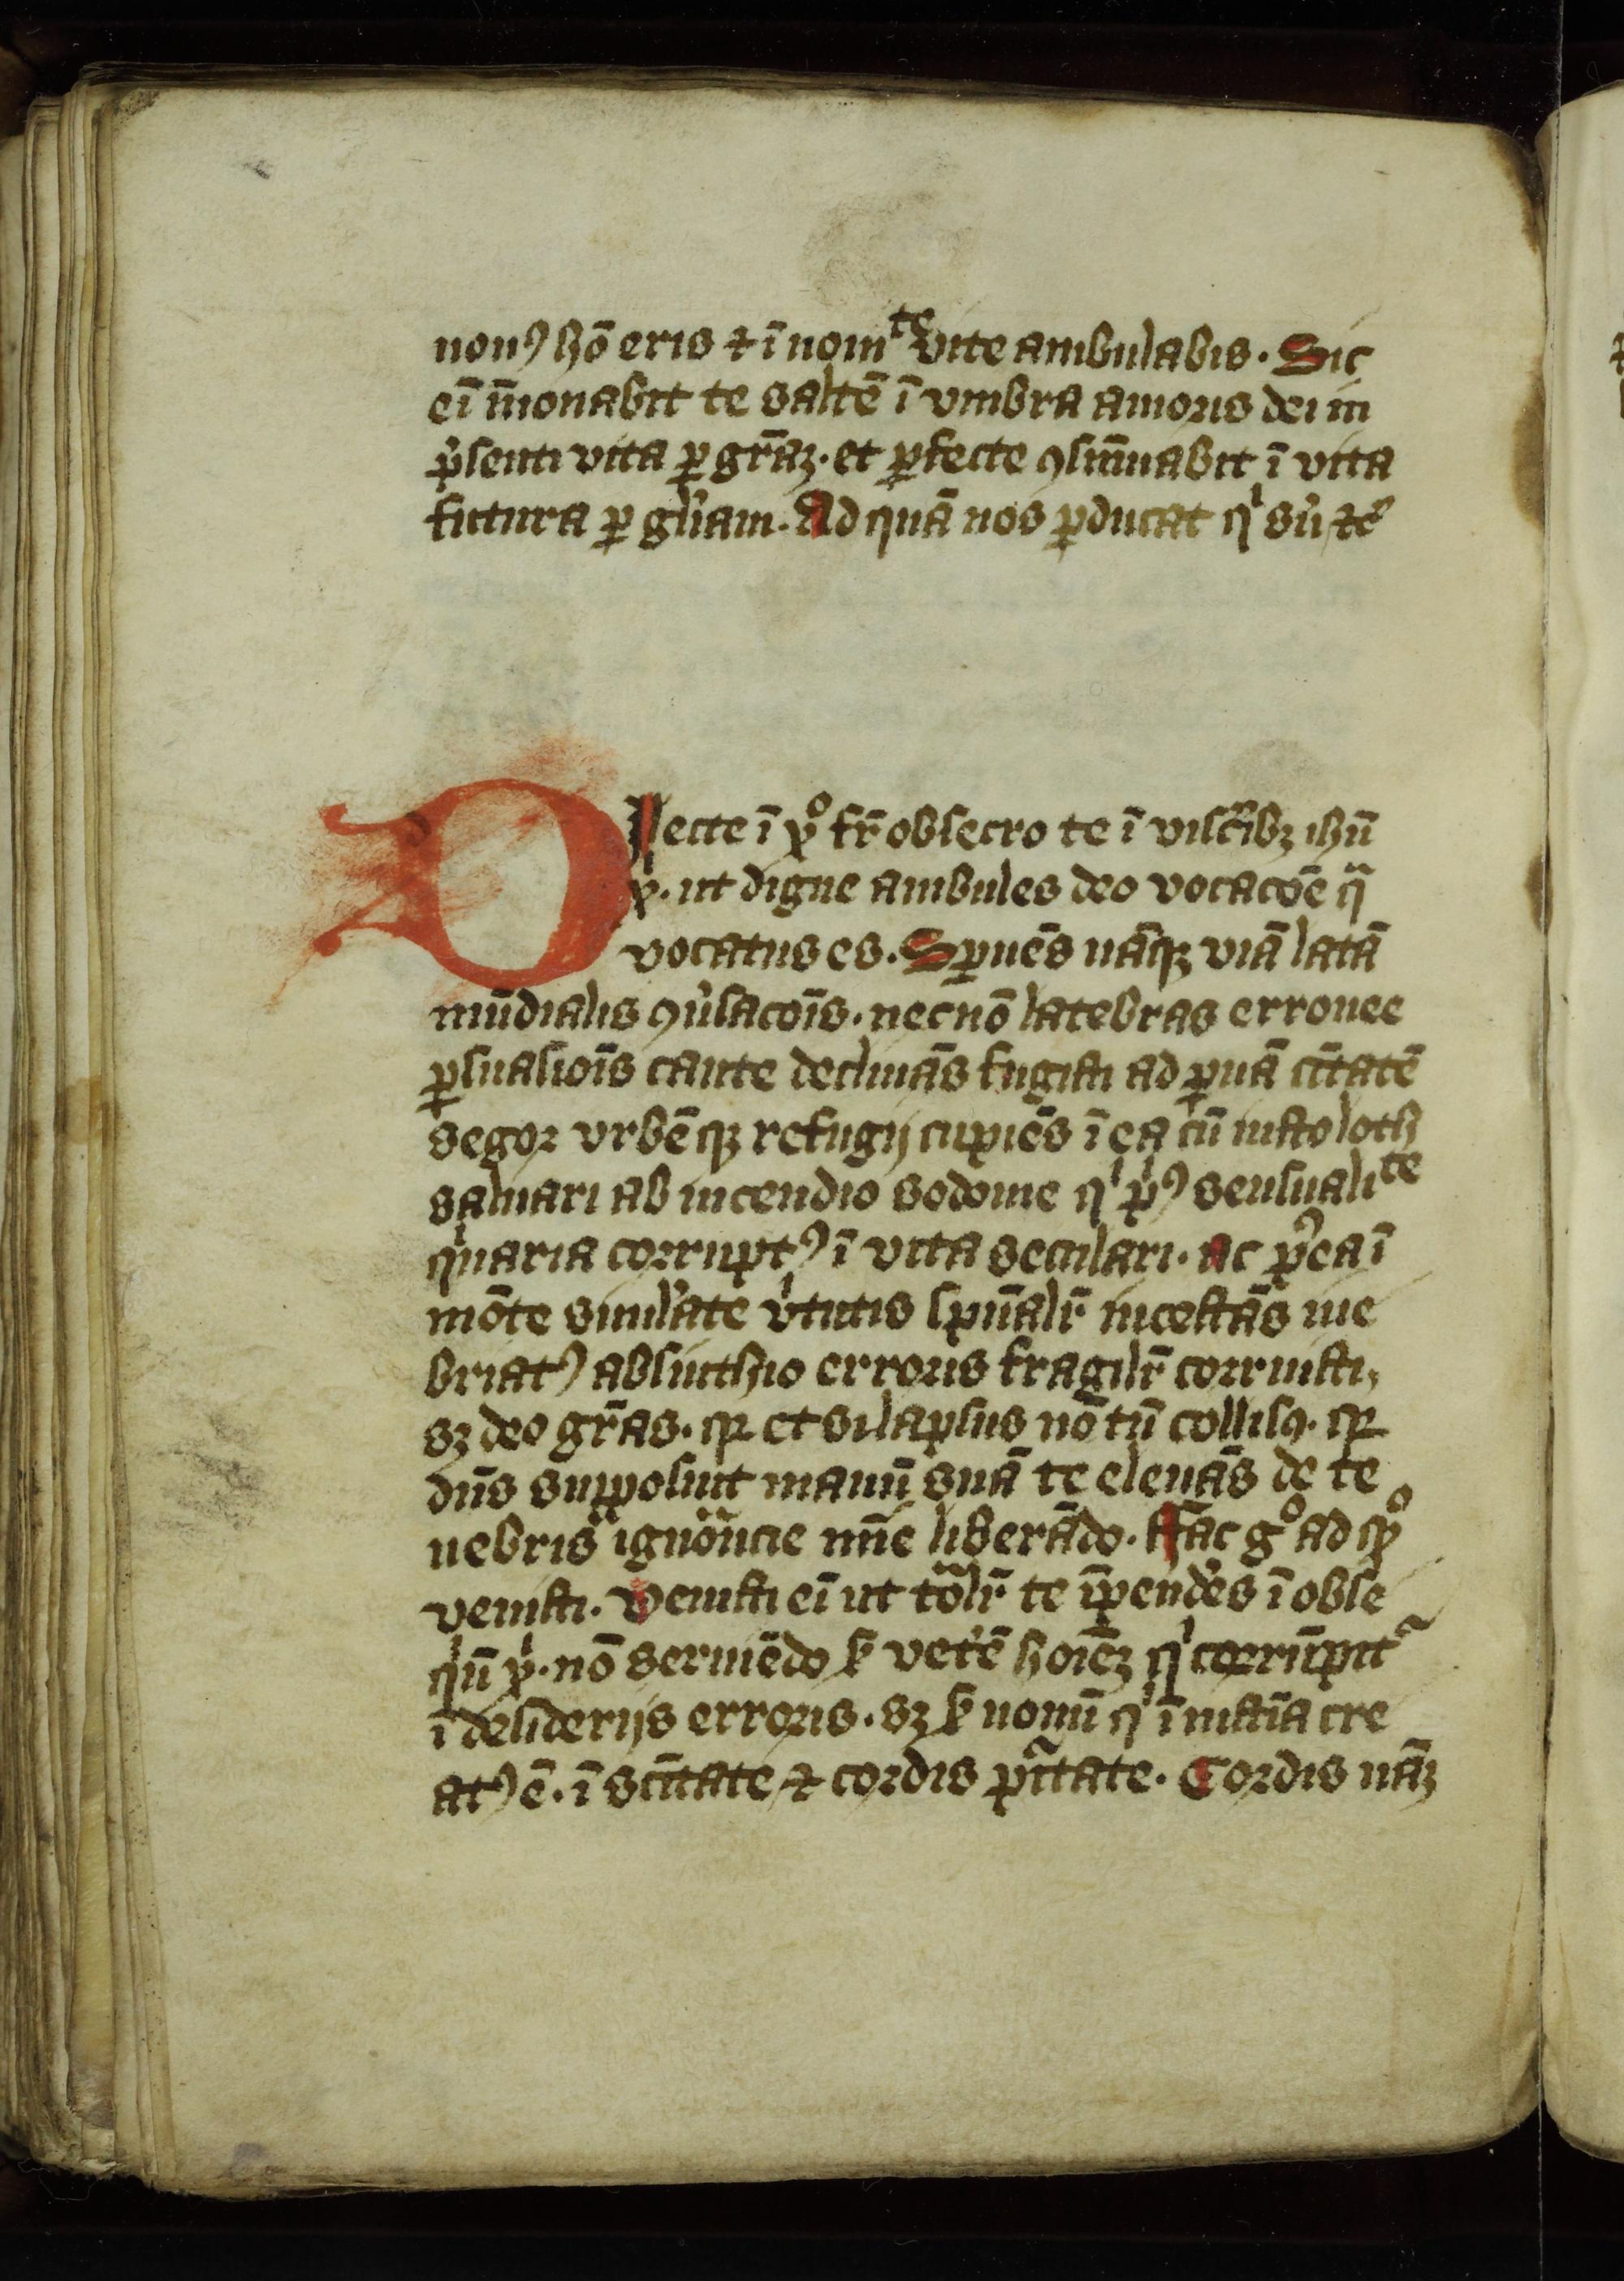 nouꝰ hō eris ⁊ ī nouitᵗᵉ vite ambulabis. Sic
eī īnouabit te saltē ī vmbra amoris dei in
p̄senti vita ꝑ gr̄aꝫ. et ꝑfecte ꝯsūmabit ī vita
futura ꝑ gl̄iam. Ad quā nos ꝑducat qⁱ sū ⁊cē
Dilecte ī xp̄o fr̄ obsecro te ī viscībꝫ ihū
xp̄i. ut digne ambules deo vocacōe q̄
vocatus es. Spnēs nāqꝫ viā latā
mūdialis ꝯūsacōis. necnō latebras erronee
ꝑsuasiōis caute declinās fugisti ad ꝑuā cītatē
segor vrbēqꝫ refugij cupiēs ī ea cū iusto loth
saluari ab incendio sodome qⁱ pⁱꝰ sensualiᵗᵉ
qⁱnaria corruptꝰ ī vita seculari. ac pꝰea ī
mōte simlate vⁱtutis spūalr̄ incestās ine
briatꝰ absinthio erroris fragilr̄ corruisti,
sꝫ deo gr̄as. qꝛ et si lapsus nō tn̄ collisꝰ. qꝛ
dn̄s supposuit manū suā te eleuās de te
nebris ignōncie mīe liberādo. Hac gͦ ad xp̄ͦ
venisti. Venisti eī ut tōlr̄ te īpendēs ī obse
qⁱū xⁱ. nō seruiēdo ẜ vetēē hoīeꝫ qⁱ corrūpitᷓ
ī desiderijs erroris. sꝫ ẜ nouū qⁱ ī iustīa cre
atꝰ ē. ī scītate ⁊ cordis pⁱtate. Cordis nāꝫ